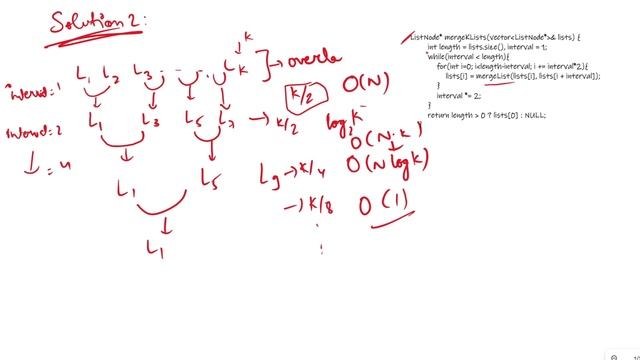 Solution 2:
K
L1 L2 L3 . - - . LK → overla
interval=1
K/2 O(N)
interval=2 L1 L3 L5 L7 → K/2 log K
O(N·K)
↓ = 4 L1 L5 L9 → K/4 O(N log K)
→ K/8 O(1)
L1
ListNode* mergeKLists(vector<ListNode*>& lists) {
int length = lists.size(), interval = 1;
while(interval < length){
for(int i=0; i<length-interval; i += interval*2){
lists[i] = mergeList(lists[i], lists[i + interval]);
}
interval *= 2;
}
return length > 0 ? lists[0] : NULL;